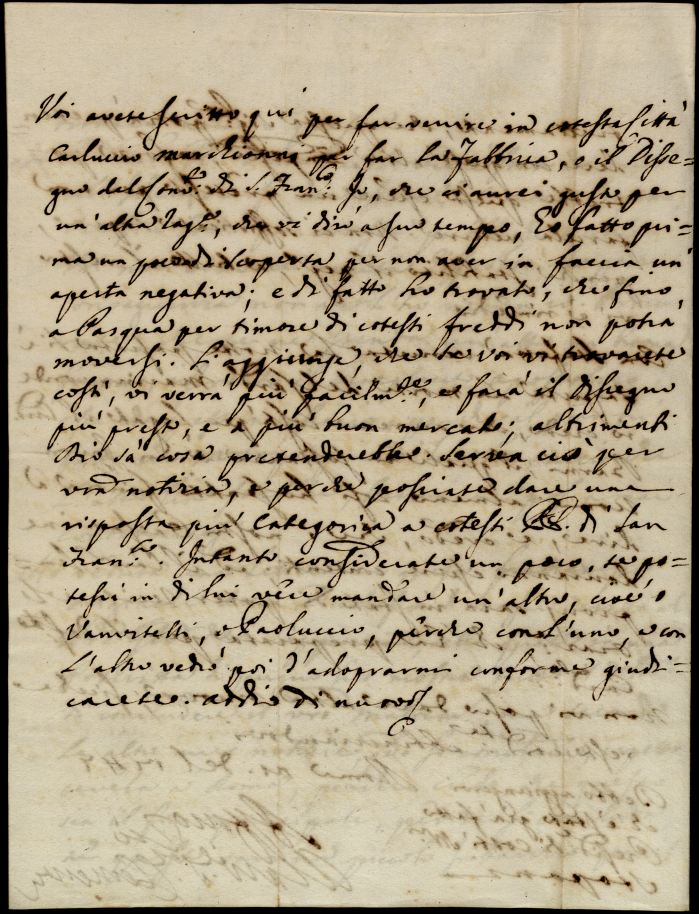 Voi avete scritto quì per far venire in cotesta Città
Carluccio Marchionni per far la Fabbrica, o il Disse=
gno del Conv.to di S. Fran.co Io, che ci aurei gusto per
un'altra rag.e, che vi dirò a suo tempo, Ho fatto pri=
ma un poco di scoperta per non aver in faccia un'
aperta negativa; e di fatto ho trovato, che fino
a Pasqua per timore di cotesti freddi non potrà
moversi. L'aggiunge, che se voi vi trovarete
costì, vi verrà più facilm.te, e farà il Dissegno
più presto, e a più buon mercato; altrimenti
Dio sà cosa pretenderebbe. Serva ciò per
vra notizia, e perche possiate dare una
risposta più categorica a cotesti PP. di San
Fran.co. Intanto considerate un poco, se po=
tessi in di lui vece mandare un'altro, cioè o
Vanvitelli, o Paoluccio, perche con l'uno, e con
l'altro vedrò poi d'adoprarmi conforme giudi=
carete. addio di nuovo